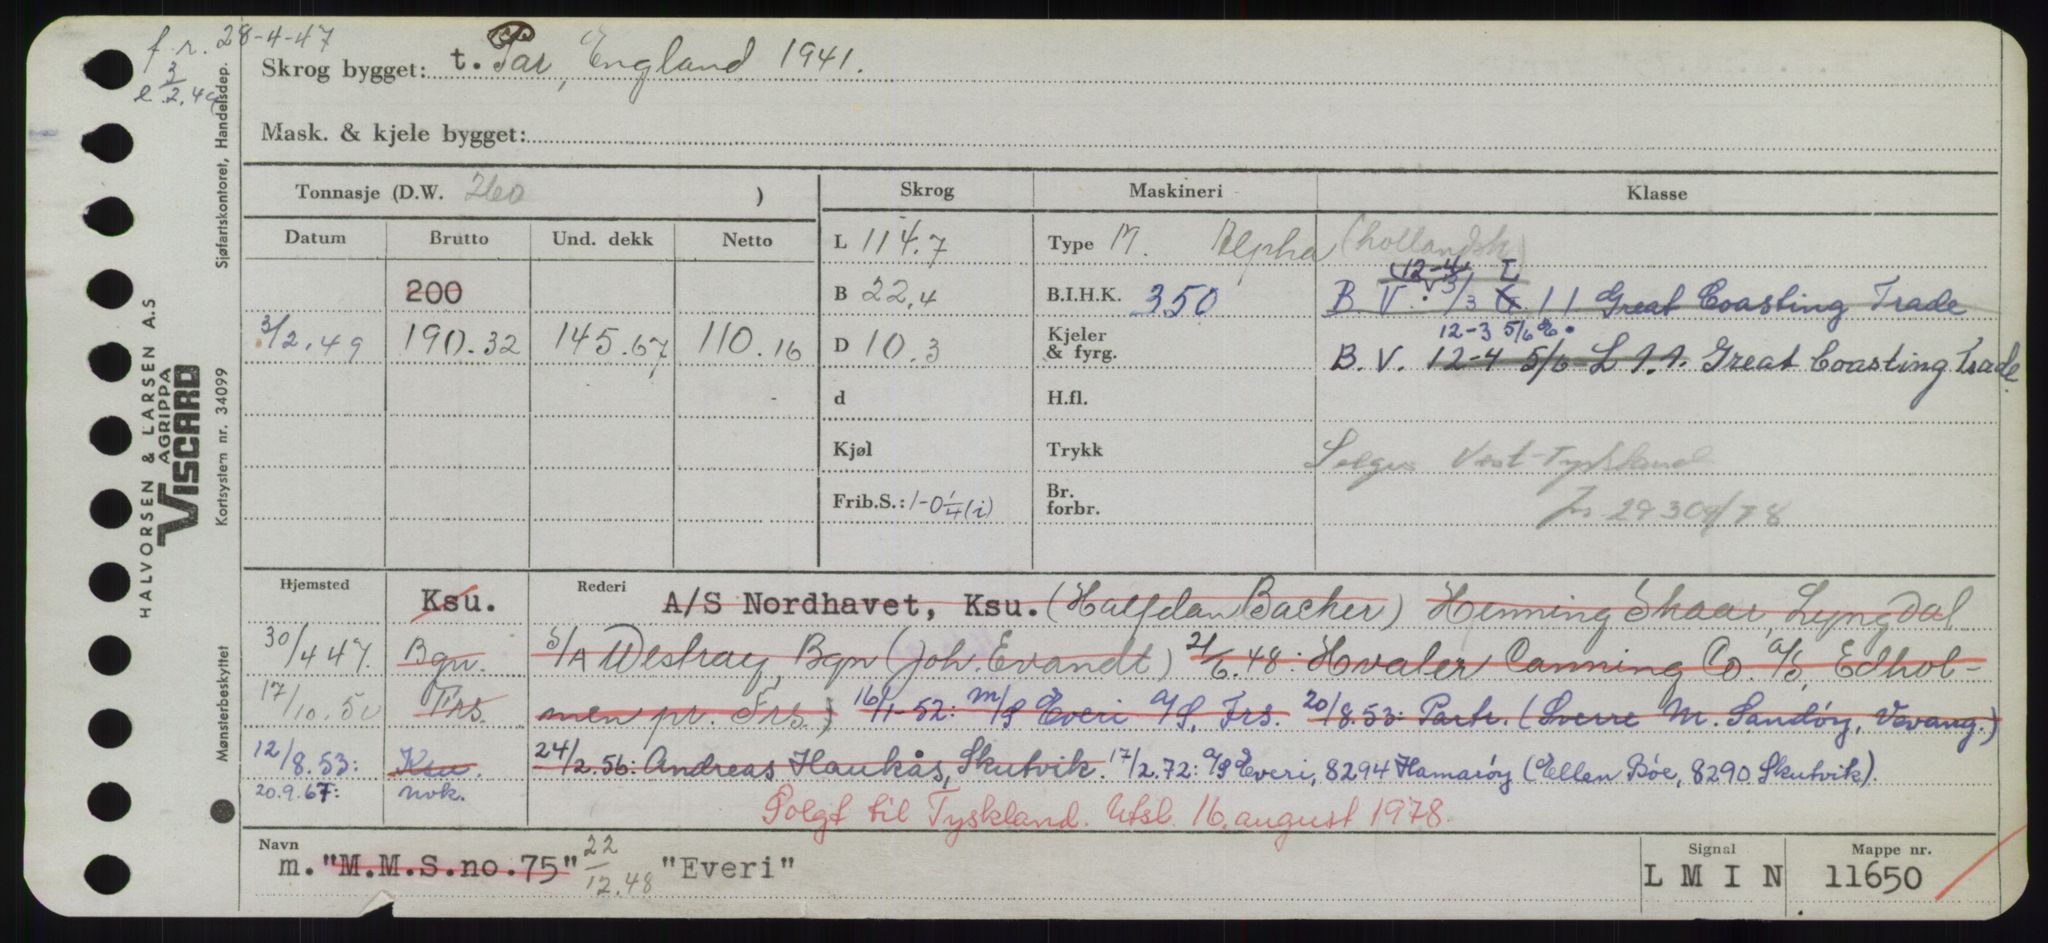 f. r. 28-4-47
e. 3/2.49
Skrog bygget: t. Par, England 1941.
Mask. & kjele bygget:
Tonnasje (D.W. 260 )
Skrog
Maskineri
Klasse
Datum Brutto Und. dekk Netto
L 114.7
Type M. Alpha (hollandsk)
200
B 22.4
B.I.H.K. 350
12-4 L
B V. 3/3 G 1 1 Great Coasting Trade
12-3 5/6 %.
3/2.49 190.32 145.67 110.16
D 10.3
Kjeler & fyrg.
B. V. 12-4 5/6 L 1.1. Great Coasting Trade.
d
H.fl.
Kjøl
Trykk
Selges Vest-Tyskland
Frib.S.: 1-0 1/4 (i)
Br. forbr.
Jr. 29304/78
Hjemsted Ksu. Rederi A/S Nordhavet, Ksu. (Halfdan Backer) Henning Skaar, Lyngdal
30/4 47. Bgn. S/A Westray, Bgn (Joh. Evandt) 21/6.48: Hvaler Canning Co. A/S, Edhol-
17/10.50 Frs. men pr. Frs.) 16/1-52: M/S Everi A/S, Frs. 20/8.53: Partr. (Sverre M. Sandøy, Vevang.)
12/8.53: Ksu. 24/2.56: Andreas Haukås, Skutvik. 17/2.72: A/S Everi, 8294 Hamarøy (Ellen Bøe, 8290 Skutvik).
20.9.67: nvk.
Solgt til Tyskland. Utsl. 16. august 1978.
Navn m. "M.M.S.no.75" 22/12.48 "Everi"
Signal L M I N
Mappe nr. 11650
HALVORSEN & LARSEN A.S
AGRIPPA
VISCARD
Sjøfartskontoret, Handelsdep.
Kortsystem nr. 34099
Mønsterbeskyttet